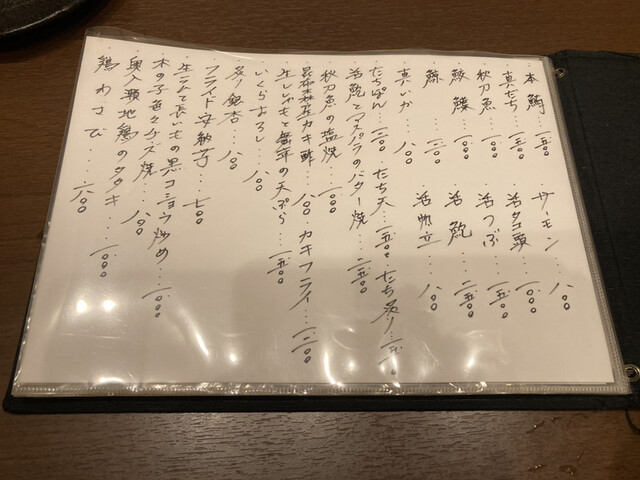 本鮪…一五〇〇 サーモン…八〇〇
真だち…一五〇〇 活タコ頭…一〇〇〇
秋刀魚…一〇〇〇 活つぶ…一五〇〇
活鮑…二五〇〇
鯨…一二〇〇 活帆立…八〇〇
真いか…八〇〇
たちぽん…一二〇〇 たち天…一五〇〇 たち炙り…一五〇〇
活鮑とアスパラのバター焼…二五〇〇
秋刀魚の塩焼…一〇〇〇
昆布森産カキ酢…八〇〇 カキフライ…一二〇〇
と舞茸の天ぷら…一五〇〇
いくらおろし…八〇〇
炙り銀杏…八〇〇
フライド安納芋…七〇〇
生ラムと長いもの黒コショウ炒め
木の子色々チーズ焼…八〇〇
奥入瀬地鶏のタタキ
鶏わさび